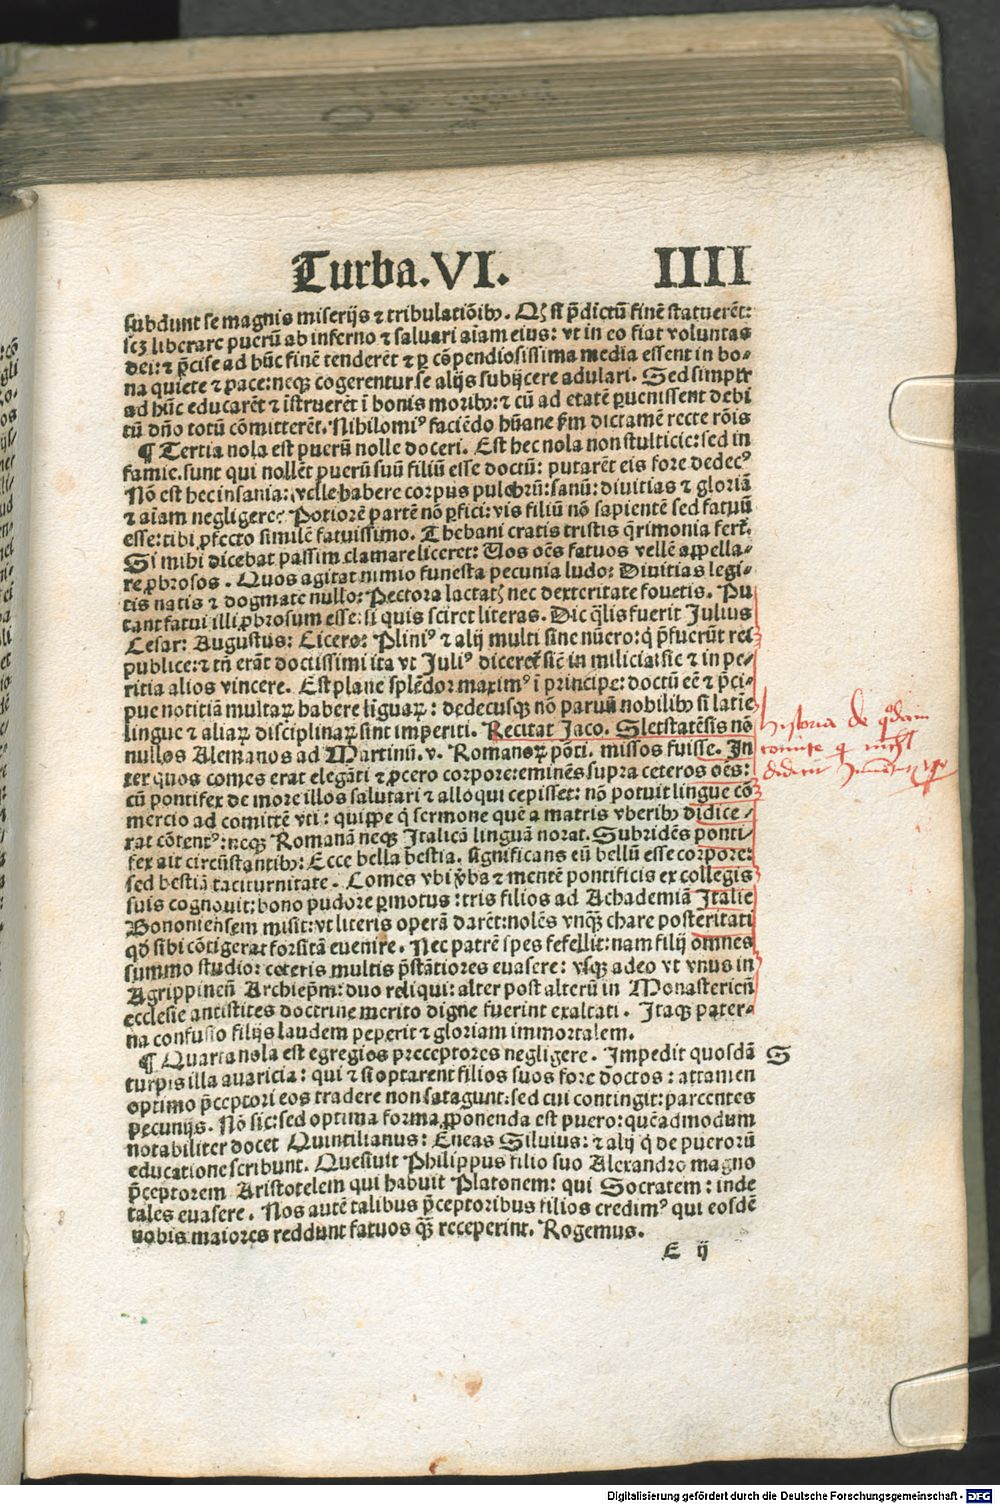 Turba.VI. IIII
subdunt se magnis miserijs ⁊ tribulatiõibꝰ. Qꝫ si p̃dictũ finẽ statuerẽt:
scꝫ liberare puerũ ab inferno ⁊ saluari aĩam eius: vt in eo fiat voluntas
dei: ⁊ p̃cise ad hũc finẽ tenderẽt ⁊ ꝑ cõpendiosissima media essent in bo⸗
na quiete ⁊ pace: neqꝫ cogerentur se alijs subijcere adulari. Sed simpłr
ad hũc educarẽt ⁊ ĩstruerẽt ĩ bonis moribꝰ: ⁊ cũ ad etatẽ ꝑuenissent debi
tũ dño totũ cõmitterẽt. Nihilomiꝰ faciẽdo hũane fm̃ dictamẽ recte rõis
¶ Tertia nola est puerũ nolle doceri. Est hec nola non stulticie: sed in
famie. sunt qui nollẽt puerũ suũ filiũ esse doctũ: putarẽt eis fore dedecꝰ
Nõ est hec insania: velle habere corpus pulchrũ: sanũ: diuitias ⁊ gloriã
⁊ aĩam negligere? Potiorẽ partẽ nõ ꝑfici: vis filiũ nõ sapientẽ sed fatuũ
esse: tibi ꝓfecto similẽ fatuissimo. Thebani cratis tristis q̃rimonia fert̃.
Si mihi dicebat passim clamare liceret: Uos oẽs fatuos vellẽ appella⸗
re ꝓbrosos. Quos agitat nimio funesta pecunia ludo: Diuitias legi⸗
tis natis ⁊ dogmate nullo: Pectora lactatꝫ nec dexteritate fouetis. Pu
tant fatui illi ꝓbrosum esse: si quis sciret literas. Dic q̃lis fuerit Julius
Cesar: Augustus: Cicero: Pliniꝰ ⁊ alij multi sine nũero: q̇ p̃fuerũt rei
publice: ⁊ tñ erãt doctissimi ita vt Juliꝰ diceret̃ siẽ in milicia: sic ⁊ in pe⸗
ritia alios vincere. Est plane splẽdor maximꝰ ĩ principe: doctũ eẽ ⁊ p̃ci⸗
pue notitiã multaꝝ habere lĩguaꝝ: dedecusqꝫ nõ paruũ nobilibꝰ si latie
lingue ⁊ aliaꝝ disciplinaꝝ sint imperiti. Recitat Jaco. Sletstatẽsis nõ
nullos Alemanos ad Martinũ. v. Romanoꝝ põti. missos fuisse. In
ter quos comes erat elegãti ⁊ ꝓcero corpore: eminẽs supra ceteros oẽs:
cũ pontifex de more illos salutari ⁊ alloqui cepisset: nõ potuit lingue cõ
mercio ad comittẽ vti: quippe q̇ sermone quẽ a matris vberibꝰ didice⸗
rat cõtentꝰ: neqꝫ Romanã neqꝫ Italicã linguã norat. Subridẽs ponti⸗
fex ait circũstantibꝰ: Ecce bella bestia. significans eũ bellũ esse corpore:
sed bestiã taciturnitate. Comes vbi ṽba ⁊ mentẽ pontificis ex collegis
suis cognouit: bono pudore ꝑmotus: tris filios ad Achademiã Italie
Bononiensem misit: vt literis operã darẽt: nolẽs vnqꝫ chare posteritati
qđ sibi cõtigerat forsitã euenire. Nec patrẽ spes fefellit: nam filij omnes
summo studio: ceteris multis p̃stãtiores euasere: vsqꝫ adeo vt vnus in
Agrippineñ Archiep̃m: duo reliqui: alter post alterũ in Monastericñ
ecclesie antistites doctrine merito digne fuerint exaltati. Itaqꝫ pater⸗
na confusio filijs laudem peperit ⁊ gloriam immortalem.
¶ Quarta nola est egregios preceptores negligere. Impedit quosdã S
turpis illa auaricia: qui ⁊ si optarent filios suos fore doctos: attamen
optimo p̃ceptori eos tradere non satagunt: sed cui contingit: parcentes
pecunijs. Nõ sic: sed optima forma ꝓponenda est puero: quẽadmodum
notabiliter docet Quintilianus: Eneas Siluius: ⁊ alij q̇ de puerorũ
educatione scribunt. Quesiuit Philippus filio suo Alexandro magno
p̃ceptorem Aristotelem qui habuit Platonem: qui Socratem: inde
tales euasere. Nos autẽ talibus p̃ceptoribus filios credimꝰ qui eosdẽ
nobis maiores reddunt fatuos qꝫ̃ receperint. Rogemus.
E ij
historia de quodam
comite q nichil